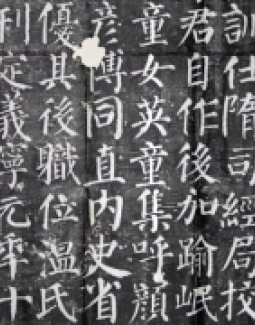 訓仕隋司經局校
君自作後加踰岷
童女英童集呼顏
彥博同直內史省
優其後職位溫氏
定義寧元年十